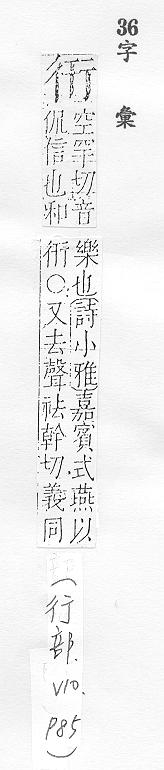 36字彙
衎
空罕切音
侃信也和
樂也(詩小雅)嘉賓式燕以
衎〇又去聲祛幹切義同
(行部.
V10.
P85)